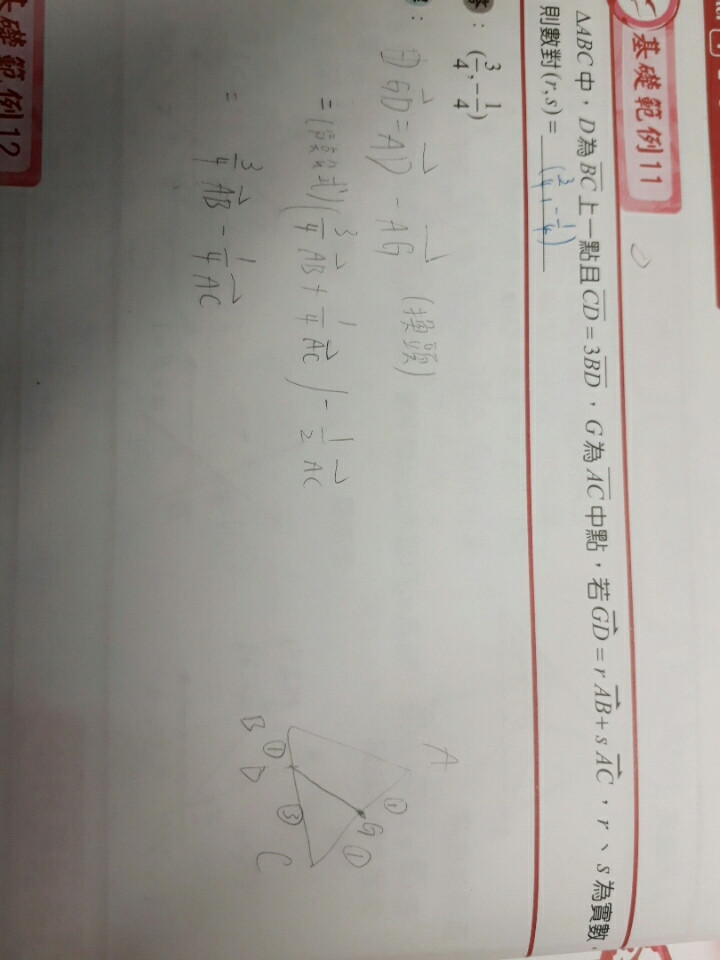 基礎範例11
△ABC 中，D 為 \overline{BC} 上一點且 \overline{CD} = 3\overline{BD}，G 為 \overline{AC} 中點，若 \vec{GD} = r\vec{AB} + s\vec{AC}，r、s 為實數，
則數對 (r, s) = (3/4, -1/4)
答：(3/4, -1/4)
\vec{GD} = \vec{AD} - \vec{AG} (換頭)
= (3/4 \vec{AB} + 1/4 \vec{AC}) - 1/2 \vec{AC}
= 3/4 \vec{AB} - 1/4 \vec{AC}
A
① G
①
B ① D ③ C
基礎範例12